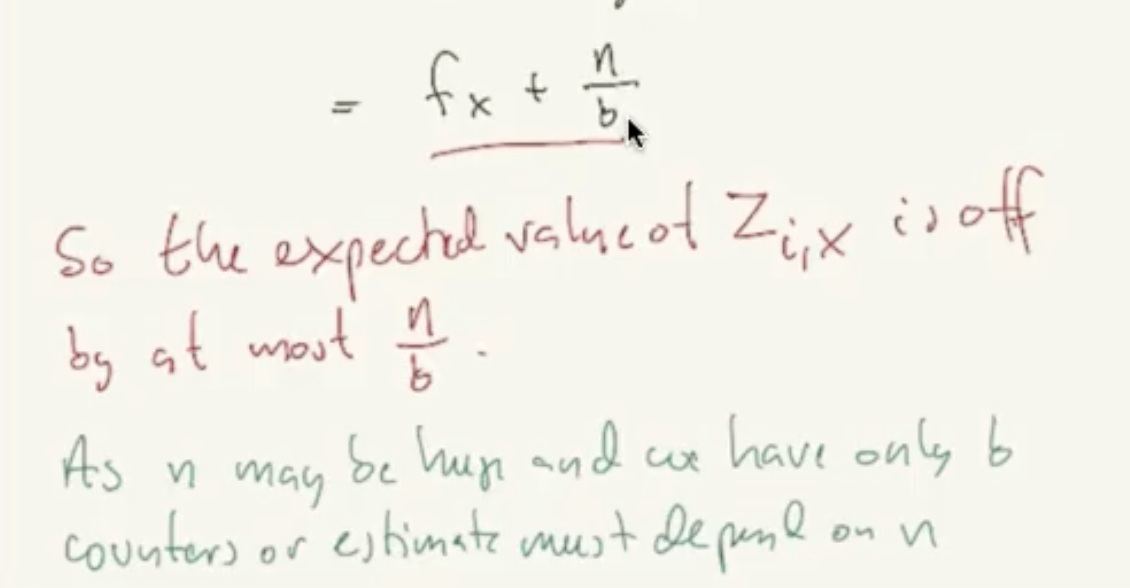 = fx + n/b
So the expected value of Zi,x is off
by at most n/b.
As n may be huge and we have only b
counters or estimate must depend on n